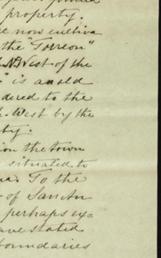 property.
now cultiva
the "Torreon"
West of the
" is an old
dered to the
West by the
ty.
on the town
situated to
To the
of San An
perhaps
ave stated
boundaries